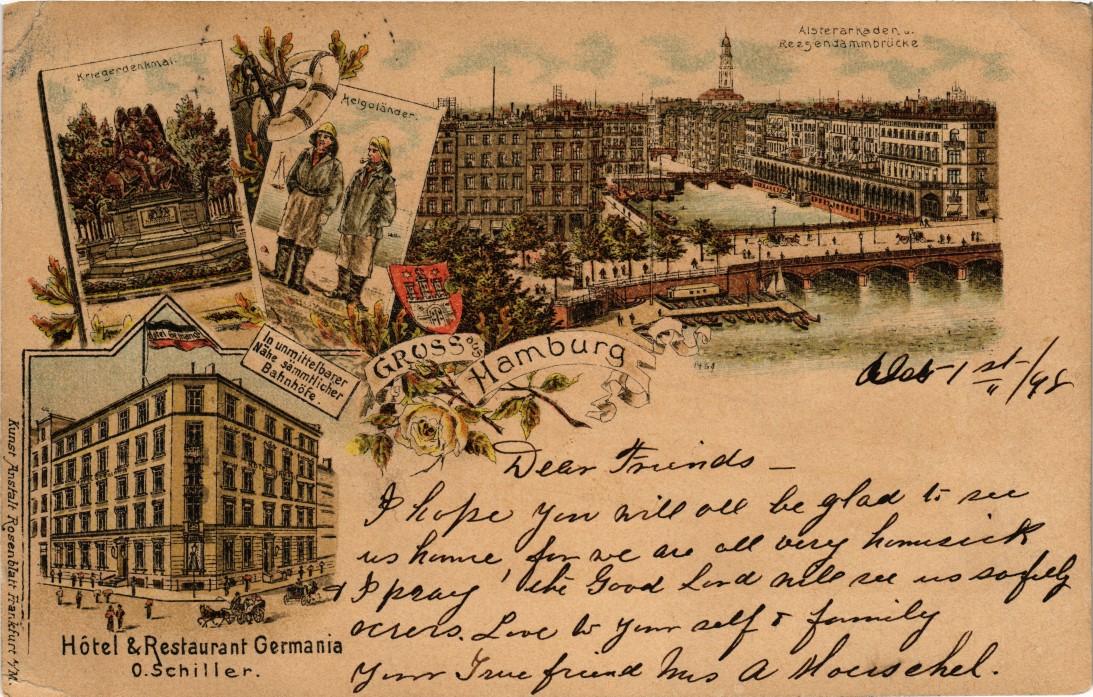 Kriegerdenkmal.
Helgoländer.
Alsterarkaden u.
Reesendammbrücke
Hotel Germania
In unmittelbarer
Nähe sämmtlicher
Bahnhöfe.
GRUSS aus
Hamburg
1454
Oct 1st/98
Dear Friends –
I hope you will all be glad to see
us home, for we are all very homesick
& I pray the Good Lord will see us safely
across. Love to your self & family
Your True friend Mrs A
Hôtel & Restaurant Germania
O. Schiller.
Kunst Anstalt Rosenblatt Frankfurt a/M.